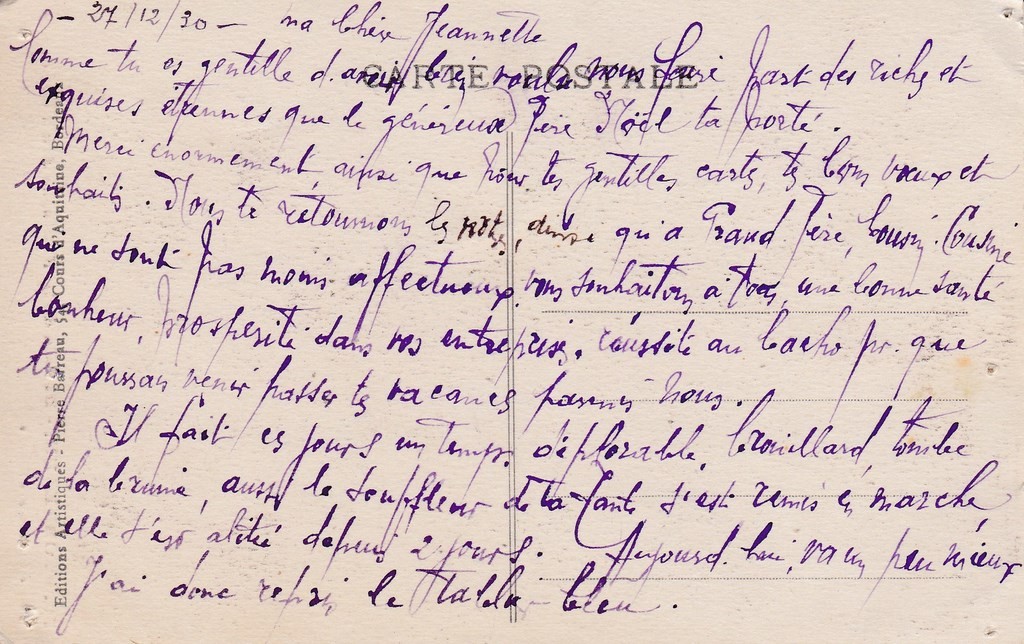 - 27/12/30 - ma chère Jeannette
Comme tu es gentille d'avoir bien voulu nous faire part des riches et
CARTE POSTALE
exquises étrennes que le généreux Père Noël t'a porté.
Merci énormement, ainsi que pour tes gentilles cartes, tes bons vœux et
souhaits. Nous te retournons les notres, ainsi qu'a Grand Père, Cousin. Cousine
qui ne sont pas moins affectueux, vous souhaitons a tous, une bonne santé
bonheur, prosperité dans vos entreprises, réussite au bacho pr. que
tu puisses venir passer tes vacances parmis nous.
Il fait ces jours un temps déplorable, brouillard, tombe
de la bruine, aussi le souffleur de ta Tante s'est remis en marche
et elle s'est alitée depuis 2 jours. Aujourd'hui, va un peu mieux
J'ai donc repris le tablier bleu.
Editions Artistiques - Pierre Barreau, Cours d'Aquitaine, Bordeaux